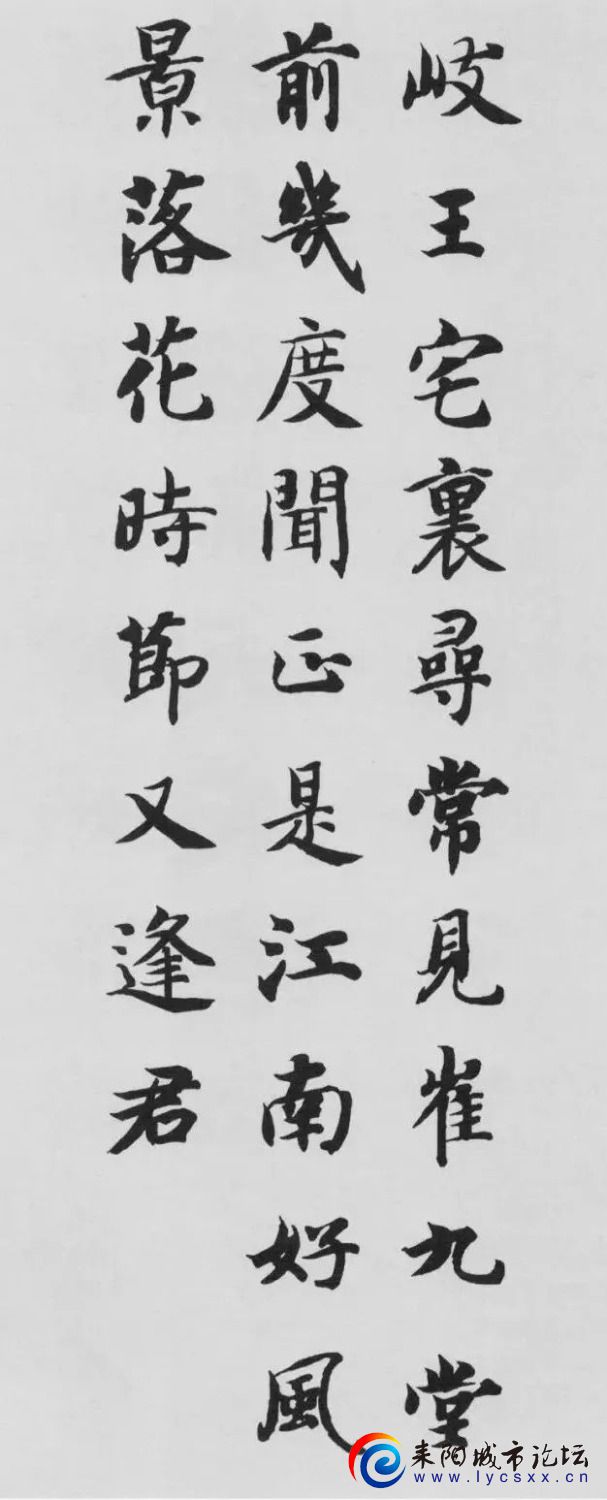 岐王宅裏尋常見崔九堂
前幾度聞正是江南好風
景落花時節又逢君
耒阳城市论坛
www.lycsxx.cn